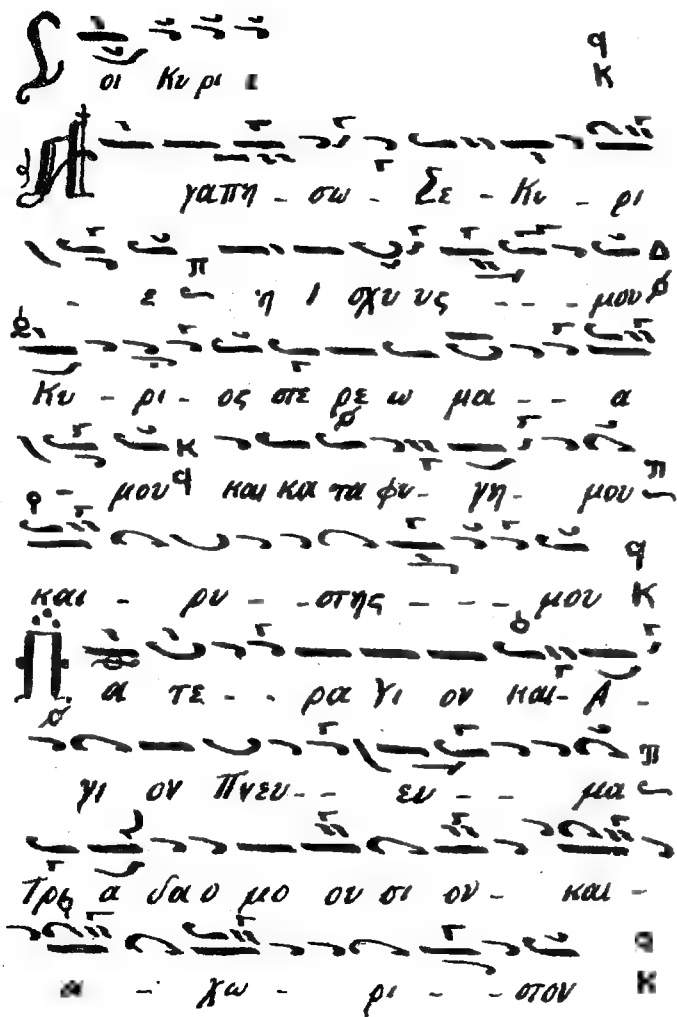 Σοι Κυρι ε
Αγαπη - σω - Σε - Κυ - ρι
- ε η Ι σχυ υς - - - μου
Κυ - ρι - ος στε ρε ω μα - - α
- μου και κα τα φυ - γη - μου
και - ρυ - - στης - - - μου
Πα τε - - ρα Υι ον και - Α -
γι ον Πνευ - - ευ - - μα
Τρι α δα ο μο ου σι ον - και -
α - χω - ρι - - στον